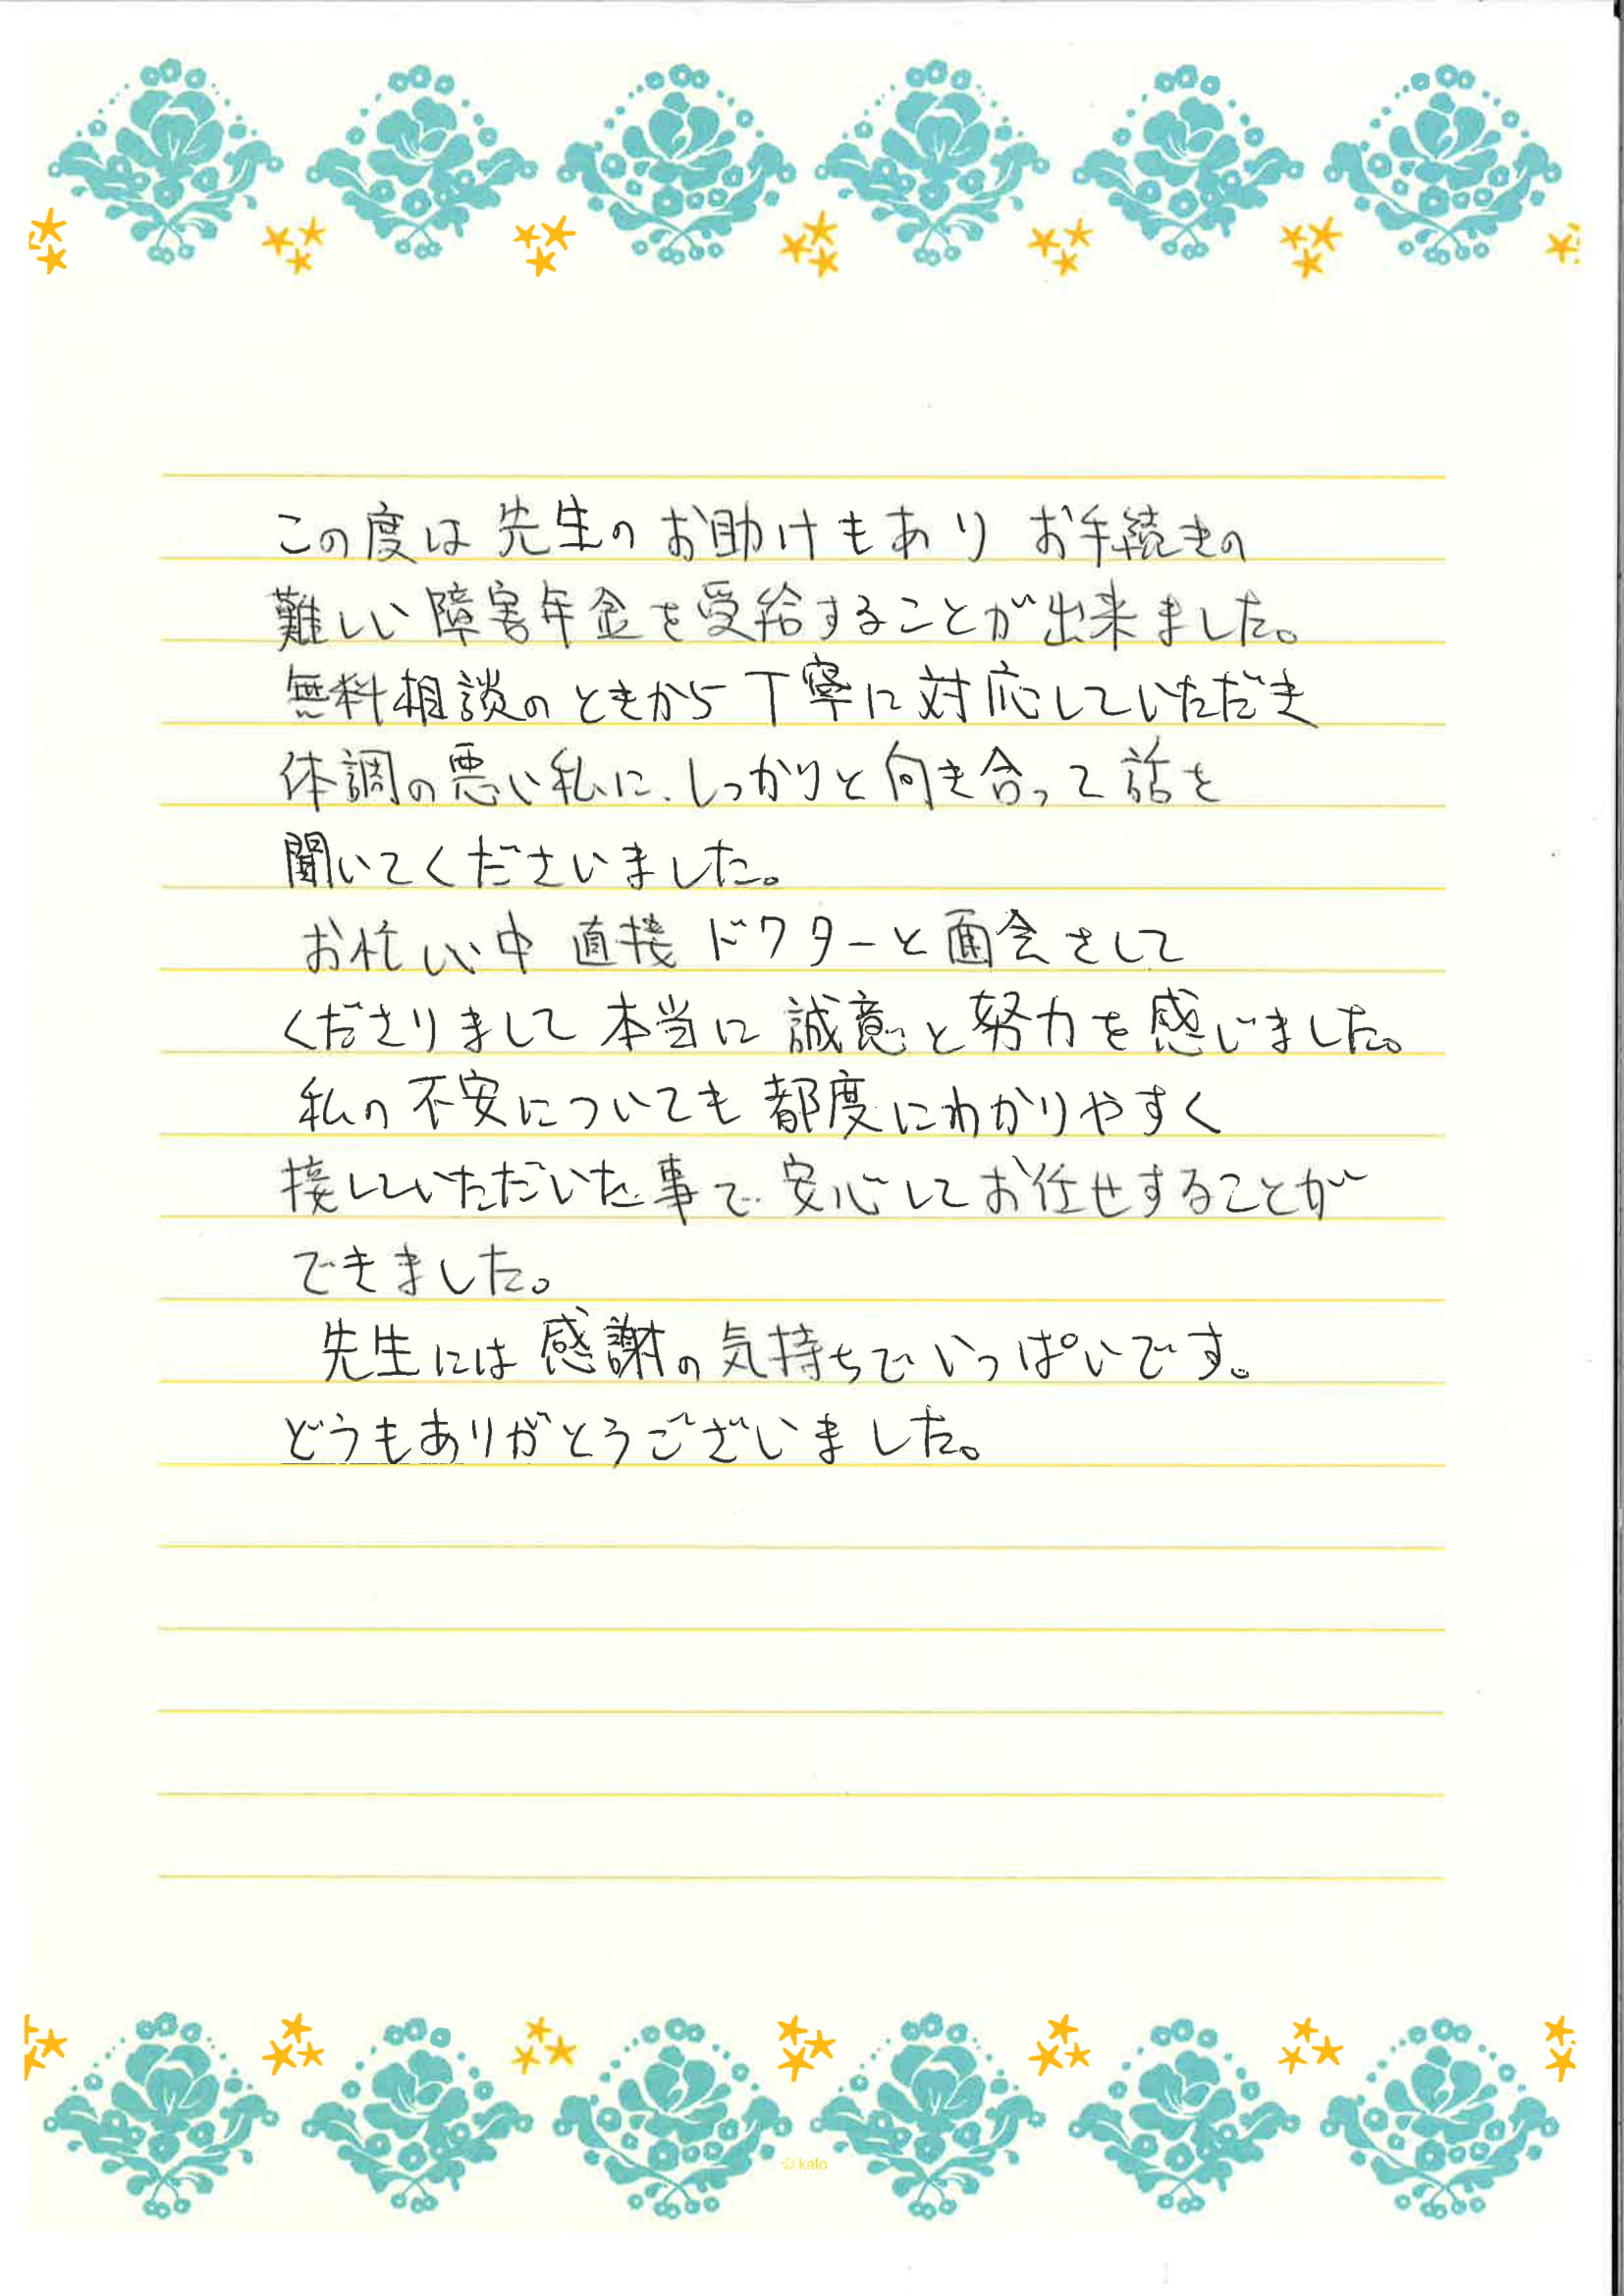 この度は 先生の お助けもあり お手続きの
難しい 障害年金を受給することが出来ました。
無料相談の ときから 丁寧に 対応していただき
体調の悪い私に、しっかりと 向き合って 話を
聞いてくださいました。
お忙しい中 直接 ドクターと面会さして
くださりまして 本当に 誠意と努力を感じました。
私の 不安についても 都度にわかりやすく
接していただいた事で 安心してお任せすることが
できました。
先生には 感謝の 気持ちでいっぱいです。
どうもありがとうございました。
© kalo